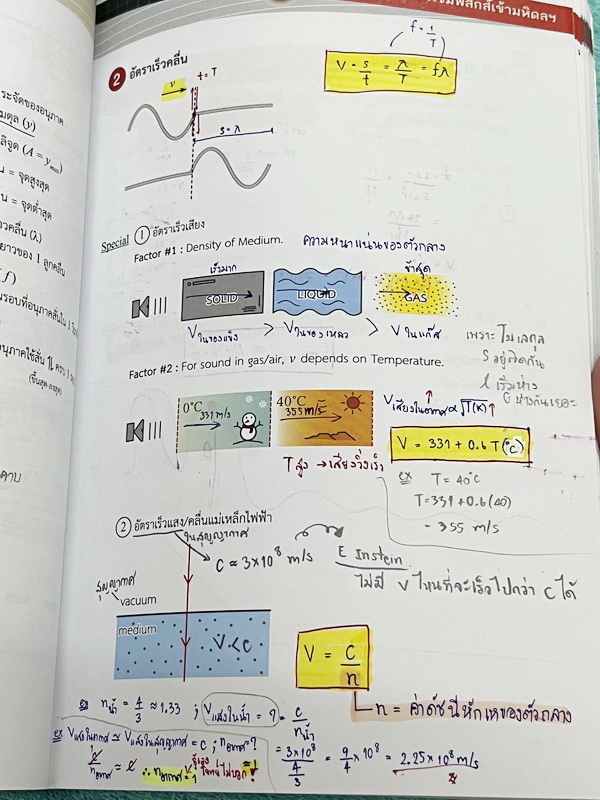 ฟิสิกส์เข้ามหิดลฯ
f = 1/T
2 อัตราเร็วคลื่น
V = s/t = λ/T = fλ
v
t = T
s = λ
ระจัดของอนุภาค
มดุล (y)
ลิจูด (A = ymax)
น = จุดสูงสุด
น = จุดต่ำสุด
วคลื่น (λ)
ยาวของ 1 ลูกคลื่น
f)
(ขึ้นสุด-ลงสุด)
คาบ
Special 1 อัตราเร็วเสียง
Factor #1 : Density of Medium. ความหนาแน่นของตัวกลาง
เร็วมาก
ช้าสุด
SOLID
LIQUID
GAS
V ในของแข็ง > V ในของเหลว > V ในแก๊ส
เพราะโมเลกุล
s อยู่ติดกัน
l เริ่มห่าง
G ห่างกันเยอะ
Factor #2 : For sound in gas/air, v depends on Temperature.
0°C
331 m/s
40°C
355 m/s
V เสียงในอากาศ ∝ √T(K)
V = 331 + 0.6 T(°C)
T สูง → เสียงวิ่งเร็ว
ex T = 40°C
T = 331 + 0.6(40)
= 355 m/s
2 อัตราเร็วแสง/คลื่นแม่เหล็กไฟฟ้า
ในสุญญากาศ
C ≈ 3×10⁸ m/s
Einstein
ไม่มี v ไหนที่จะเร็วไปกว่า c ได้
สุญญากาศ
vacuum
medium
V < c
V = c/n
n = ค่าดัชนีหักเหของตัวกลาง
ex n น้ำ = 4/3 ≈ 1.33 ; V แสงในน้ำ = ? = c/n น้ำ
= 3×10⁸/(4/3) = 9/4 × 10⁸ = 2.25×10⁸ m/s
ex V แสงในอากาศ ≃ V แสงในสุญญากาศ = c ; n อากาศ = ?
c/n อากาศ = c ∴ n อากาศ = 1
โจทย์ไม่บอก